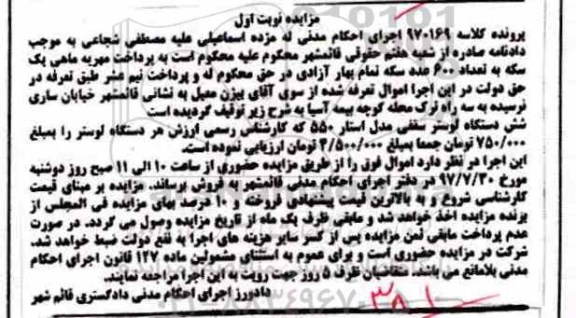 مزایده نوبت اول
پرونده کلاسه ۹۷۰۱۶۹ اجرای احکام مدنی له مژده اسماعیلی علیه مصطفی شجاعی به موجب
دادنامه صادره از شعبه هفتم حقوقی قائمشهر محکوم علیه محکوم است به پرداخت مهریه ماهی یک
سکه به تعداد ۶۰۰ عدد سکه تمام بهار آزادی در حق محکوم له و پرداخت نیم عشر طبق تعرفه در
حق دولت در این اجرا اموال تعرفه شده از سوی آقای بیژن معیل به نشانی قائمشهر خیابان ساری
نرسیده به سه راه ترک محله کوچه بیمه آسیا به شرح زیر توقیف گردیده است
شش دستگاه لوستر سقفی مدل استار ۵۵۰ که کارشناس رسمی ارزش هر دستگاه لوستر را بمبلغ
۷۵۰/۰۰۰ تومان جمعا بمبلغ ۴/۵۰۰/۰۰۰ تومان ارزیابی نموده است.
این اجرا در نظر دارد اموال فوق را از طریق مزایده حضوری از ساعت ۱۰ الی ۱۱ صبح روز دوشنبه
مورخ ۹۷/۷/۳۰ در دفتر اجرای احکام مدنی قائمشهر به فروش برساند. مزایده بر مبنای قیمت
کارشناسی شروع و به بالاترین قیمت پیشنهادی فروخته و ۱۰ درصد بهای مزایده فی المجلس از
برنده مزایده اخذ خواهد شد و مابقی ظرف یک ماه از تاریخ مزایده وصول می گردد. در صورت
عدم پرداخت مابقی ثمن مزایده پس از کسر سایر هزینه های اجرا به نفع دولت ضبط خواهد شد.
شرکت در مزایده حضوری است و برای عموم به استثنای مشمولین ماده ۱۲۷ قانون اجرای احکام
مدنی بلامانع می باشد. متقاضیان ظرف ۵ روز جهت رویت به این اجرا مراجعه نمایند.
دادورز اجرای احکام مدنی دادگستری قائم شهر
۳۸۱